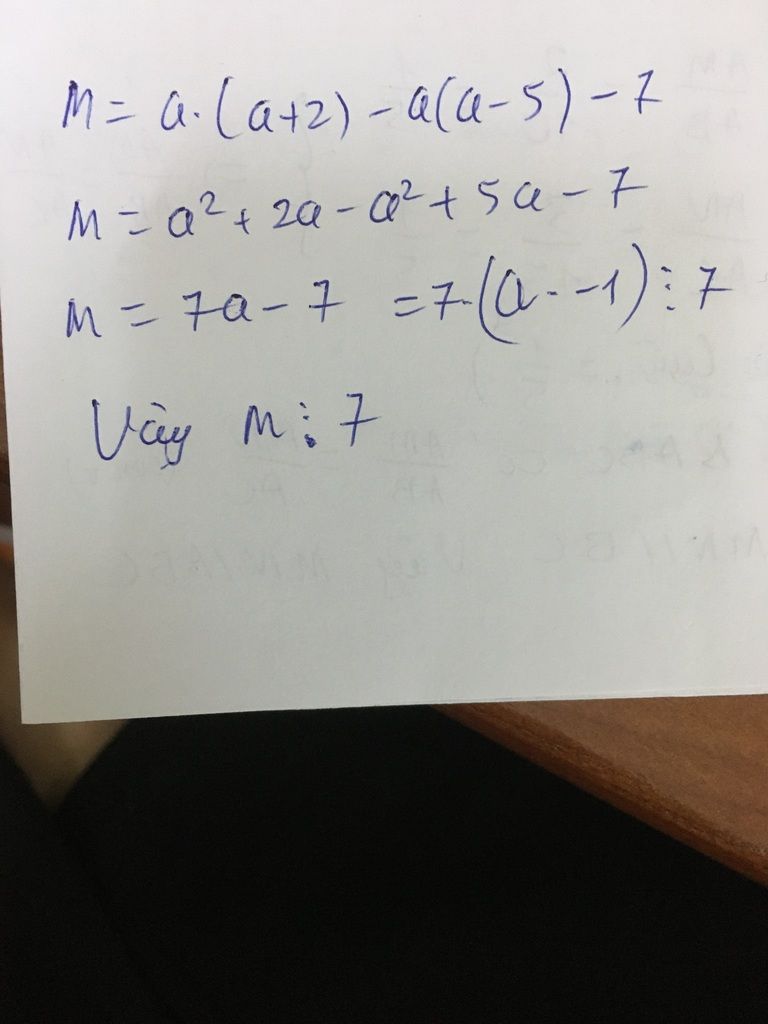 M = a.(a+2) - a(a-5) - 7
M = a² + 2a - a² + 5a - 7
M = 7a - 7 = 7.(a - 1) ⋮ 7
Vậy M ⋮ 7